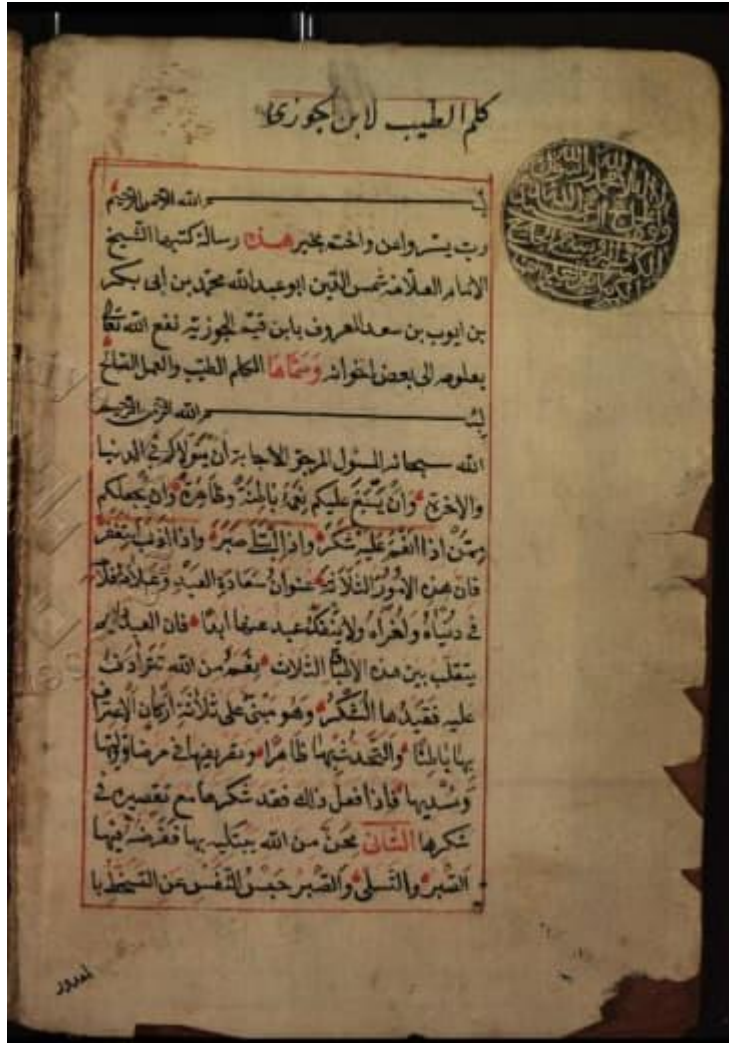 كلم الطيب لابن جوزى
بسم الله الرحمن الرحيم
رب يسر واعن واختم بخير هذه رسالة كتبها الشيخ
الامام العلامة شمس الدين ابوعبدالله محمد بن ابى بكر
بن ايوب بن سعد المعروف بابن قيم الجوزية نفع الله تعالى
بعلومه الى بعض اخوانه وسماها الكلم الطيب والعمل الصالح
بسم الله الرحمن الرحيم
الله سبحانه المسئول المرجو الاجابة ان يتولاكم فى الدنيا
والاخرة وان يسبغ عليكم نعمه باطنة وظاهرة وان يجعلكم
ممن اذا انعم عليه شكر واذا ابتلى صبر واذا اذنب استغفر
فان هذه الامور الثلاثة عنوان سعادة العبد وعلامة فلاحه
فى دنياه واخراه ولاينفك عبد عنها ابدا فان العبد دايم
يتقلب بين هذه الاطباق الثلاث نعم من الله تترادف
عليه فقيدها الشكر وهو مبنى على ثلاثة اركان الاعتراف
بها باطنا والتحدث بها ظاهرا وتصريفها فى مرضاة وليها
ومسديها فاذا فعل ذلك فقد شكرها مع تقصيره فى
شكرها الثانى محن من الله يبتليه بها ففرضه فيها
الصبر والتسلى والصبر حبس النفس عن التسخط با